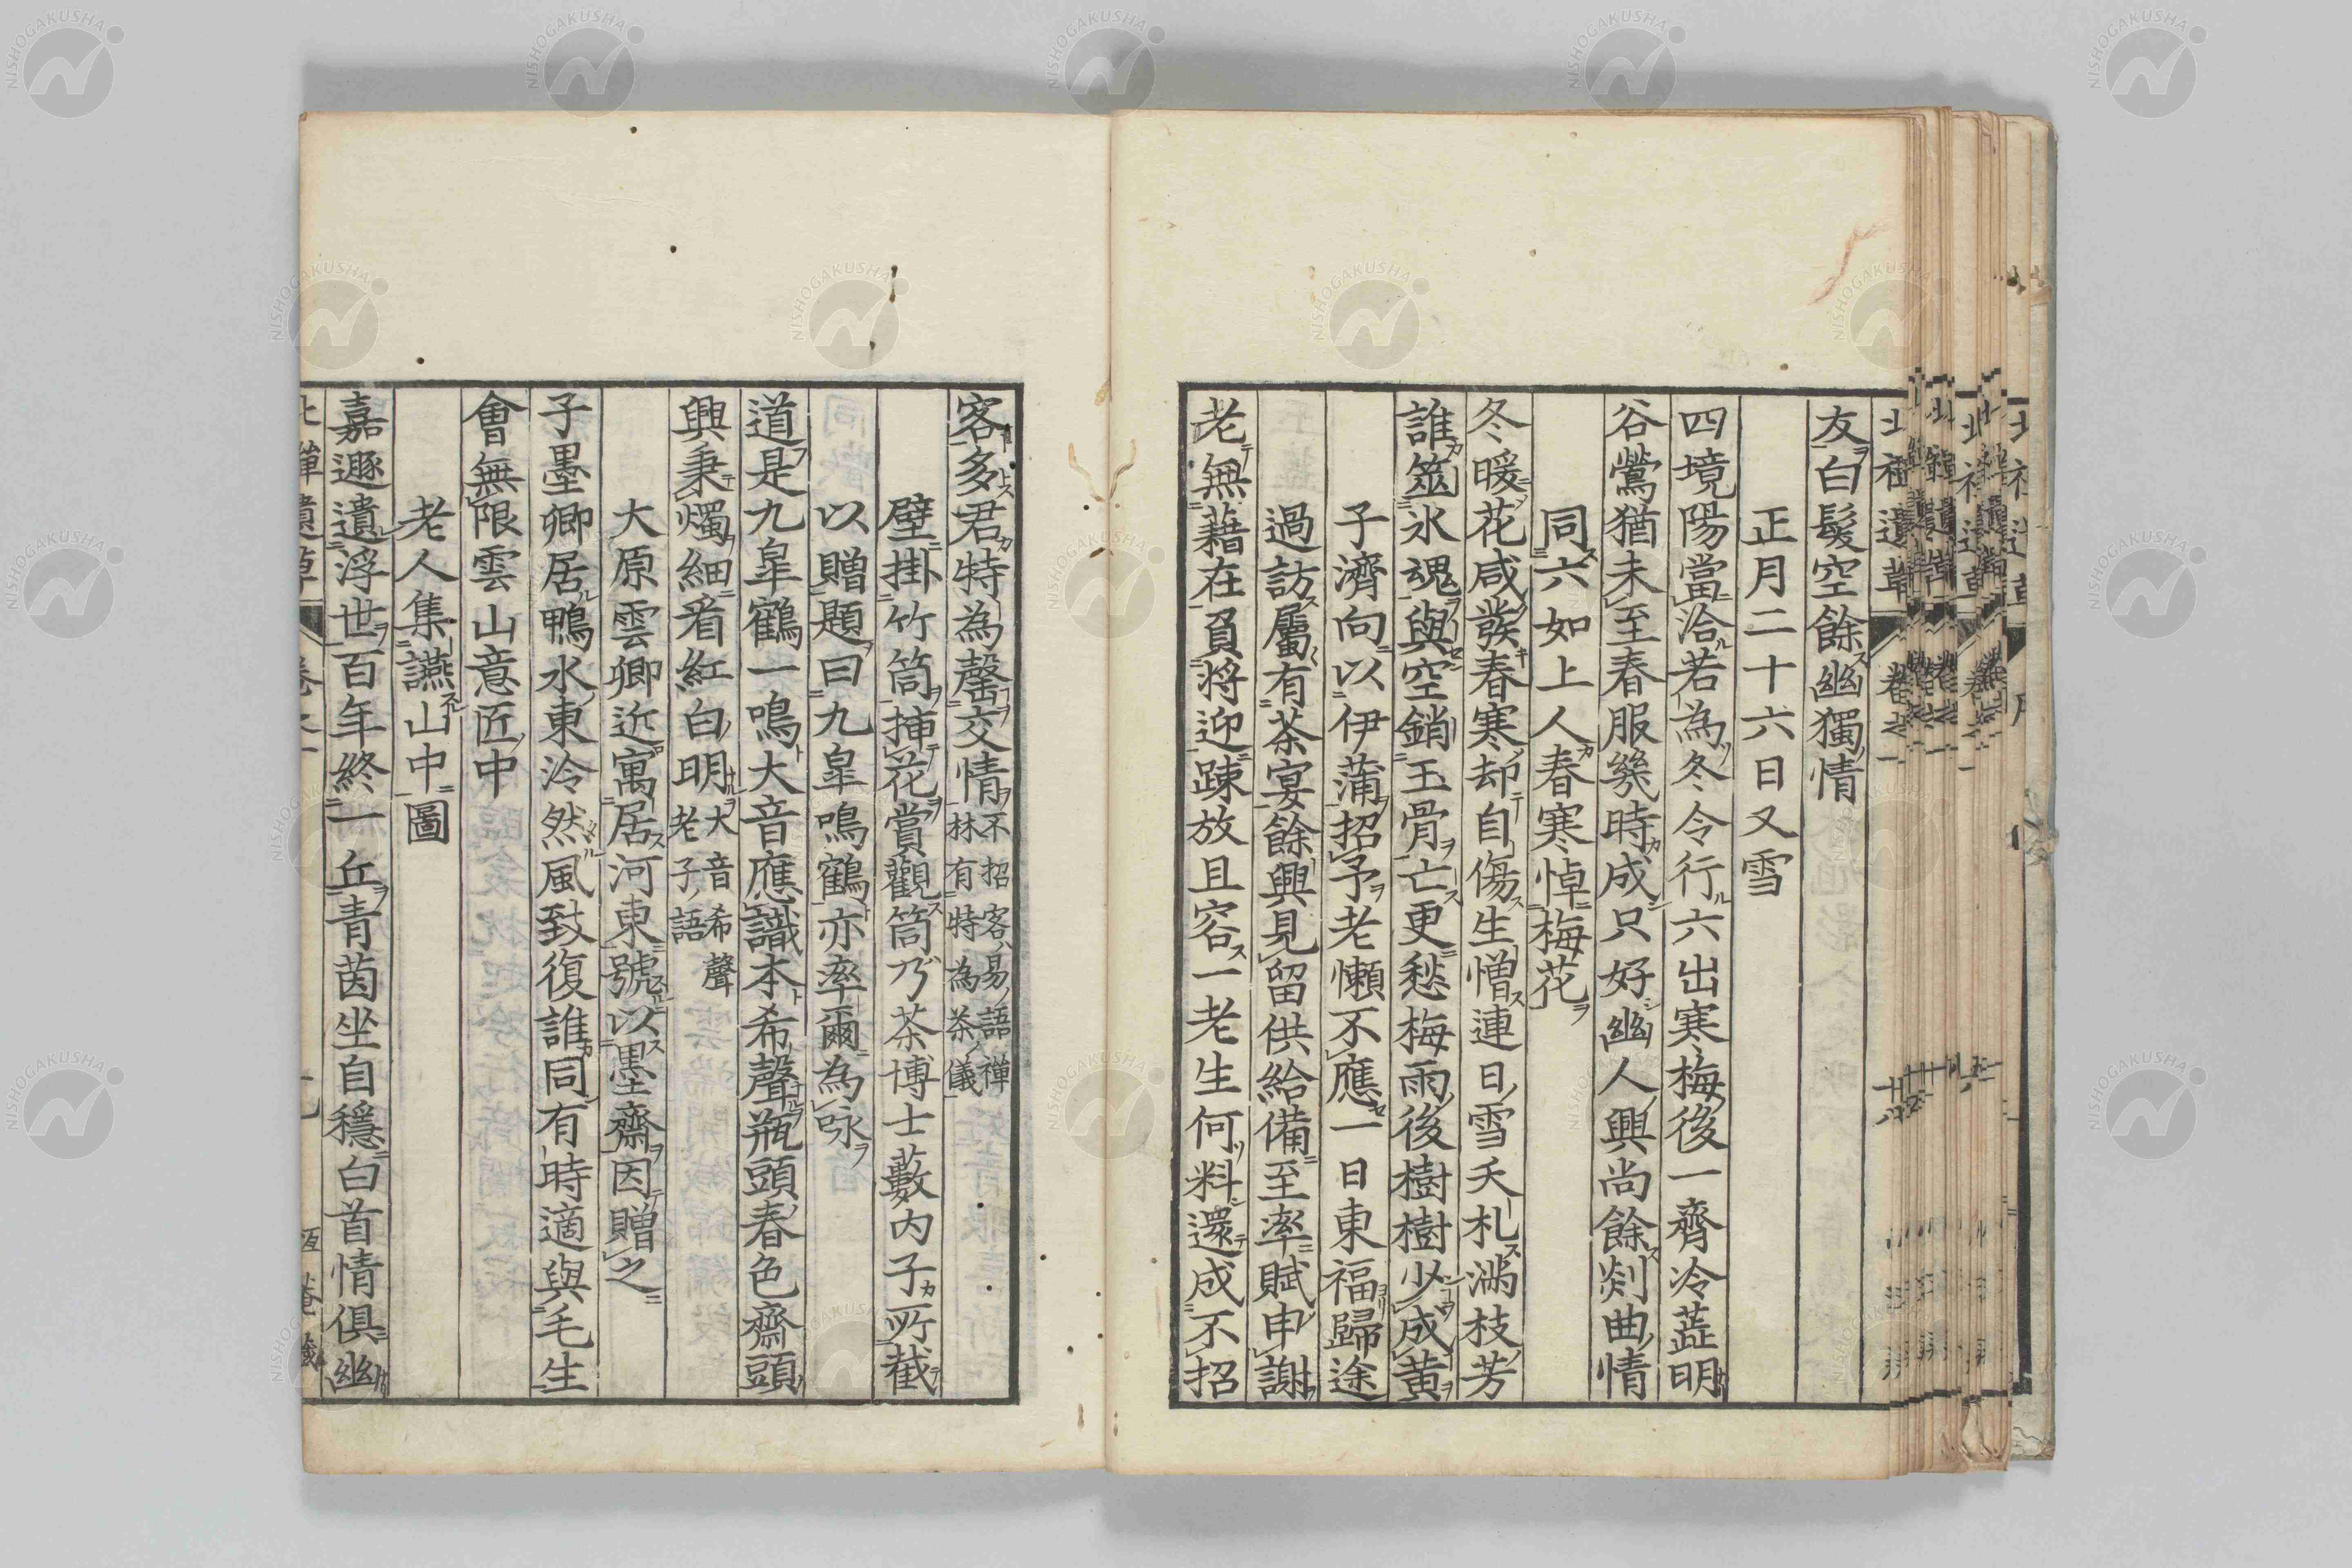 友白髮空餘幽獨情
正月二十六日又雪
四境陽當洽若為冬令行六出寒梅後一齊冷蕋明
谷鶯猶未至春服幾時成只好幽人興尚餘剡曲情
同六如上人春寒悼梅花
冬暖花咸發春寒却自傷生憎連日雪夭札滿枝芳
誰筮氷魂與空銷玉骨亡更愁梅雨後樹樹少成黄
子濟向以伊蒲招予老懶不應一日東福歸途
過訪屬有茶宴餘興見留供給備至率賦申謝
老無藉在負將迎踈放且容一老生何料還成不招
客多君特為罄交情不招客易語禪
林有特為茶儀
壁掛竹筒挿花賞觀筒乃茶博士藪内子所截
以贈題曰九皐鳴鶴亦率爾為咏
道是九皐鶴一鳴大音應識本希聲瓶頭春色齋頭
興秉燭細看紅白明大音希聲
老子語
大原雲卿近寓居河東號以墨齋因贈之
子墨卿居鴨水東泠然風致復誰同有時適與毛生
會無限雲山意匠中
老人集讌山中圖
嘉遯遺浮世百年終一丘青茵坐自穩白首情俱幽